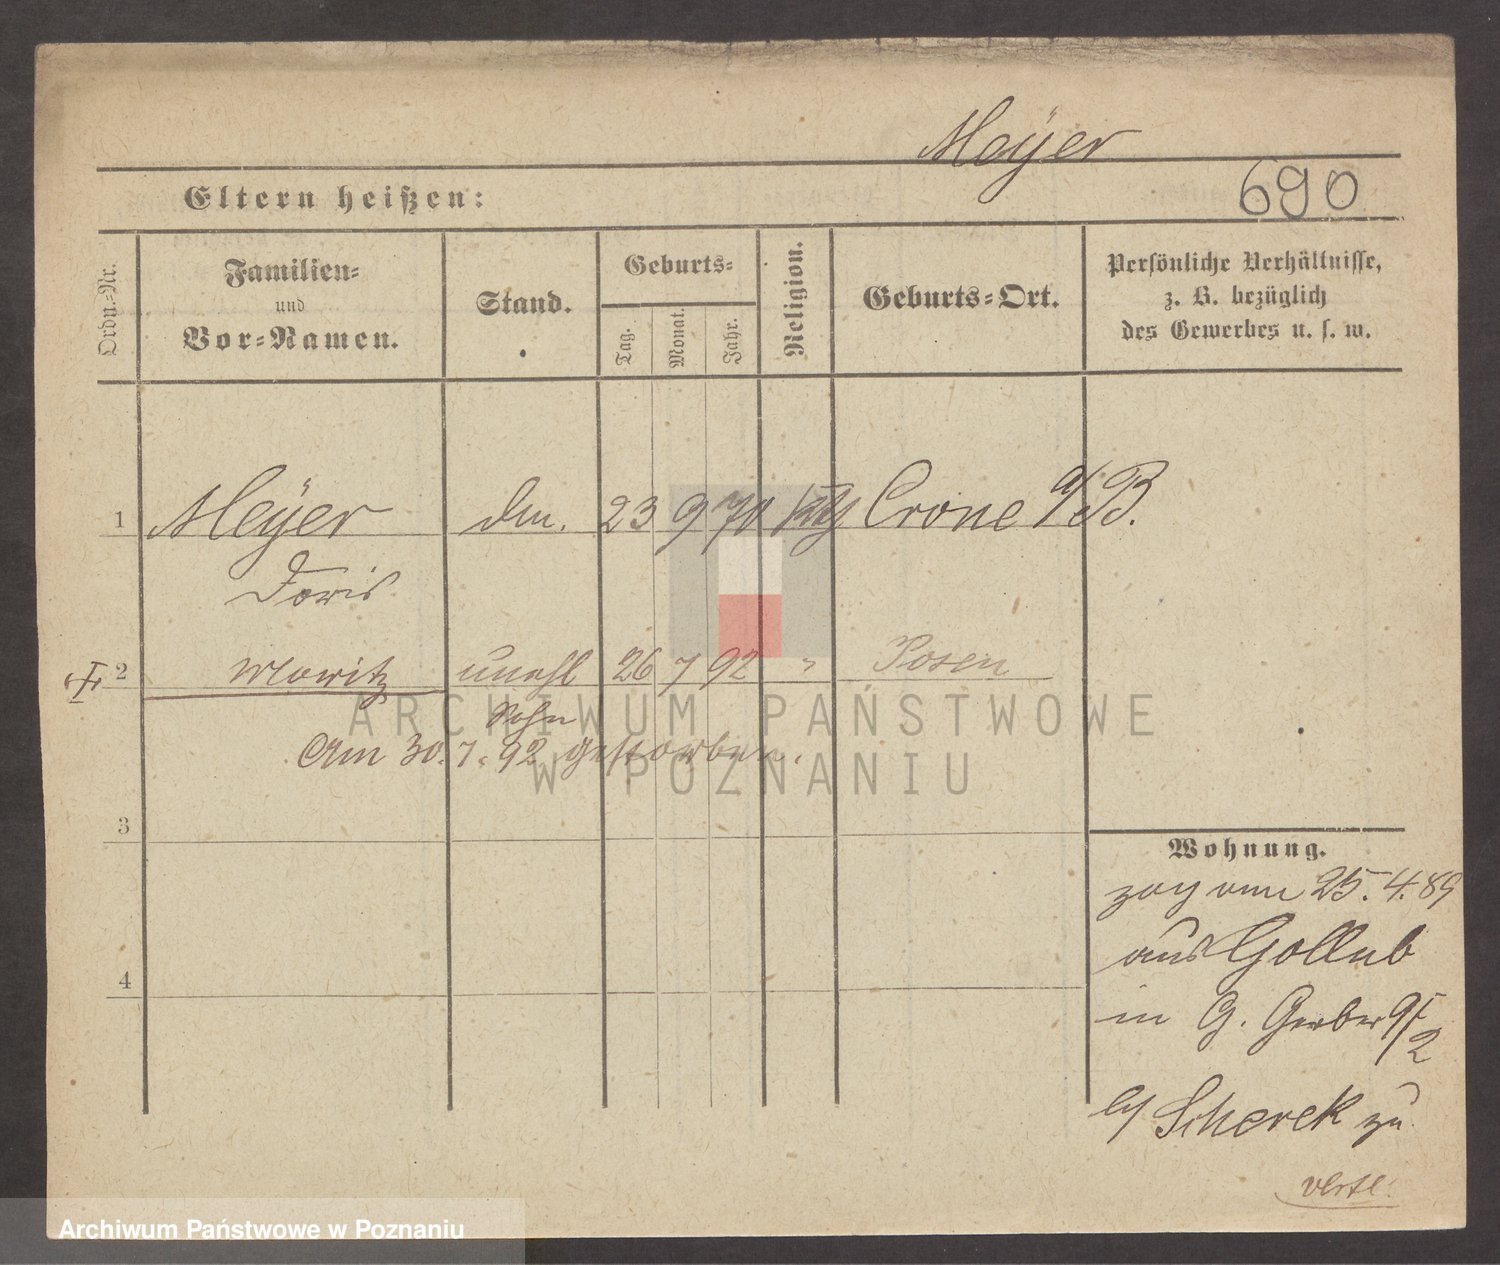 Meÿer
Eltern heißen:
690
Ordn.-Nr.
Familien-
und
Vor-Namen.
Stand.
Geburts-
Tag.
Monat.
Jahr.
Religion.
Geburts-Ort.
Persönliche Verhältnisse,
z. B. bezüglich
des Gewerbes u. s. w.
1 Meÿer 23 9 70 Crone a/B.
Doris
2 Moritz unehl 26 7 92 " Posen
Sohn
Am 30.7.92 gestorben.
3
4
Wohnung.
zog am 25.4.89
aus Gollub
in G. Gerber 9/2
b/ Scherek zu
ARCHIWUM PAŃSTWOWE
W POZNANIU
Archiwum Państwowe w Poznaniu